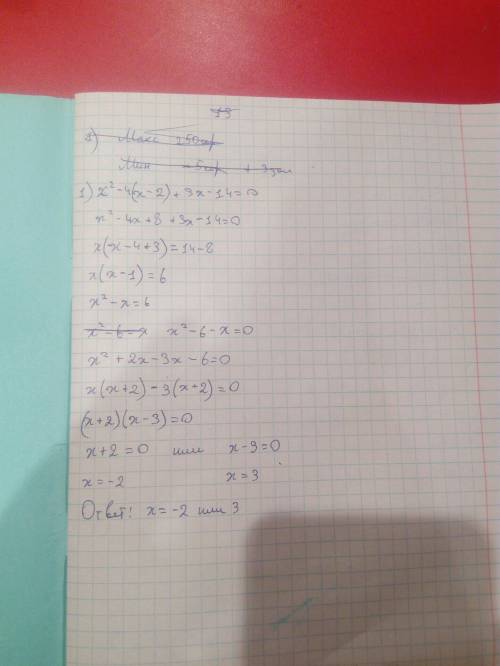 13
1) Макс 250гр
Мин 5гр + 3зол
1) x² - 4(x - 2) + 3x - 14 = 0
x² - 4x + 8 + 3x - 14 = 0
x(x - 4 + 3) = 14 - 8
x(x - 1) = 6
x² - x = 6
x² - 6 - x x² - 6 - x = 0
x² + 2x - 3x - 6 = 0
x(x + 2) - 3(x + 2) = 0
(x + 2)(x - 3) = 0
x + 2 = 0 или x - 3 = 0
x = -2 x = 3
Ответ: x = -2 или 3